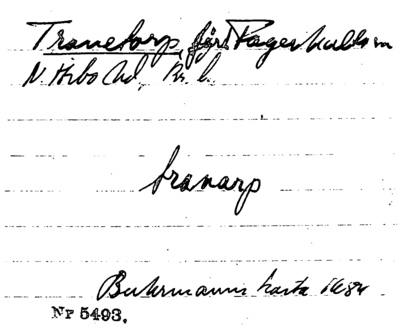 Tranetorp, förs. Fagerhults sn
N. Åsbo hd, Kr. l.
tranarp
Buhrmanns karta 1684
Nr 5493.